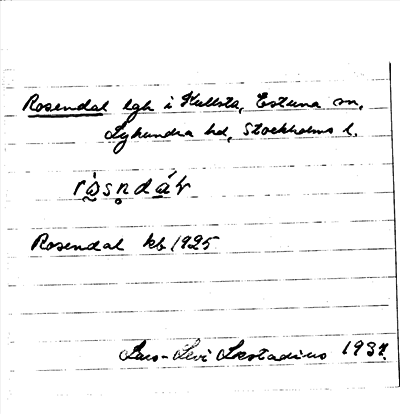 Rosendal lgh i Kullsta, Estuna sn,
Lyhundra hd, Stockholms l.
Rosendal kb 1925
Lars-Levi Læstadius 1937